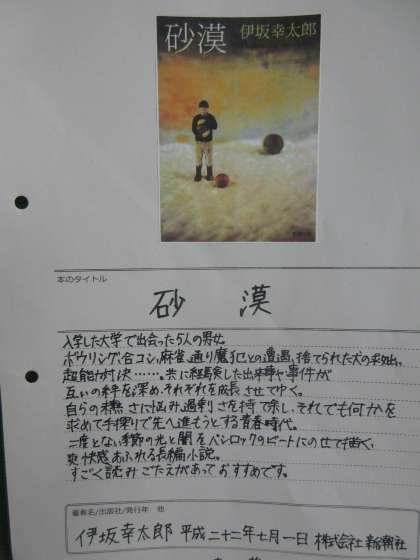 砂漠 伊坂幸太郎
本のタイトル
砂 漠
入学した大学で出会った5人の男女。
ボウリング、合コン、麻雀、通り魔犯との遭遇、捨てられた犬の救出、
超能力対決……。共に経験した出来事や事件が
互いの絆を深め、それぞれを成長させてゆく。
自らの未熟さに悩み、過剰さを持て余し、それでも何かを
求めて手探りで先へ進もうとする青春時代。
二度とない季節の光と闇をパンクロックのビートにのせて描く、
爽快感あふれる長編小説。
すごく読みごたえがあっておすすめです。
著者名/出版社/発行年 他
伊坂幸太郎 平成二十二年七月一日 株式会社新潮社